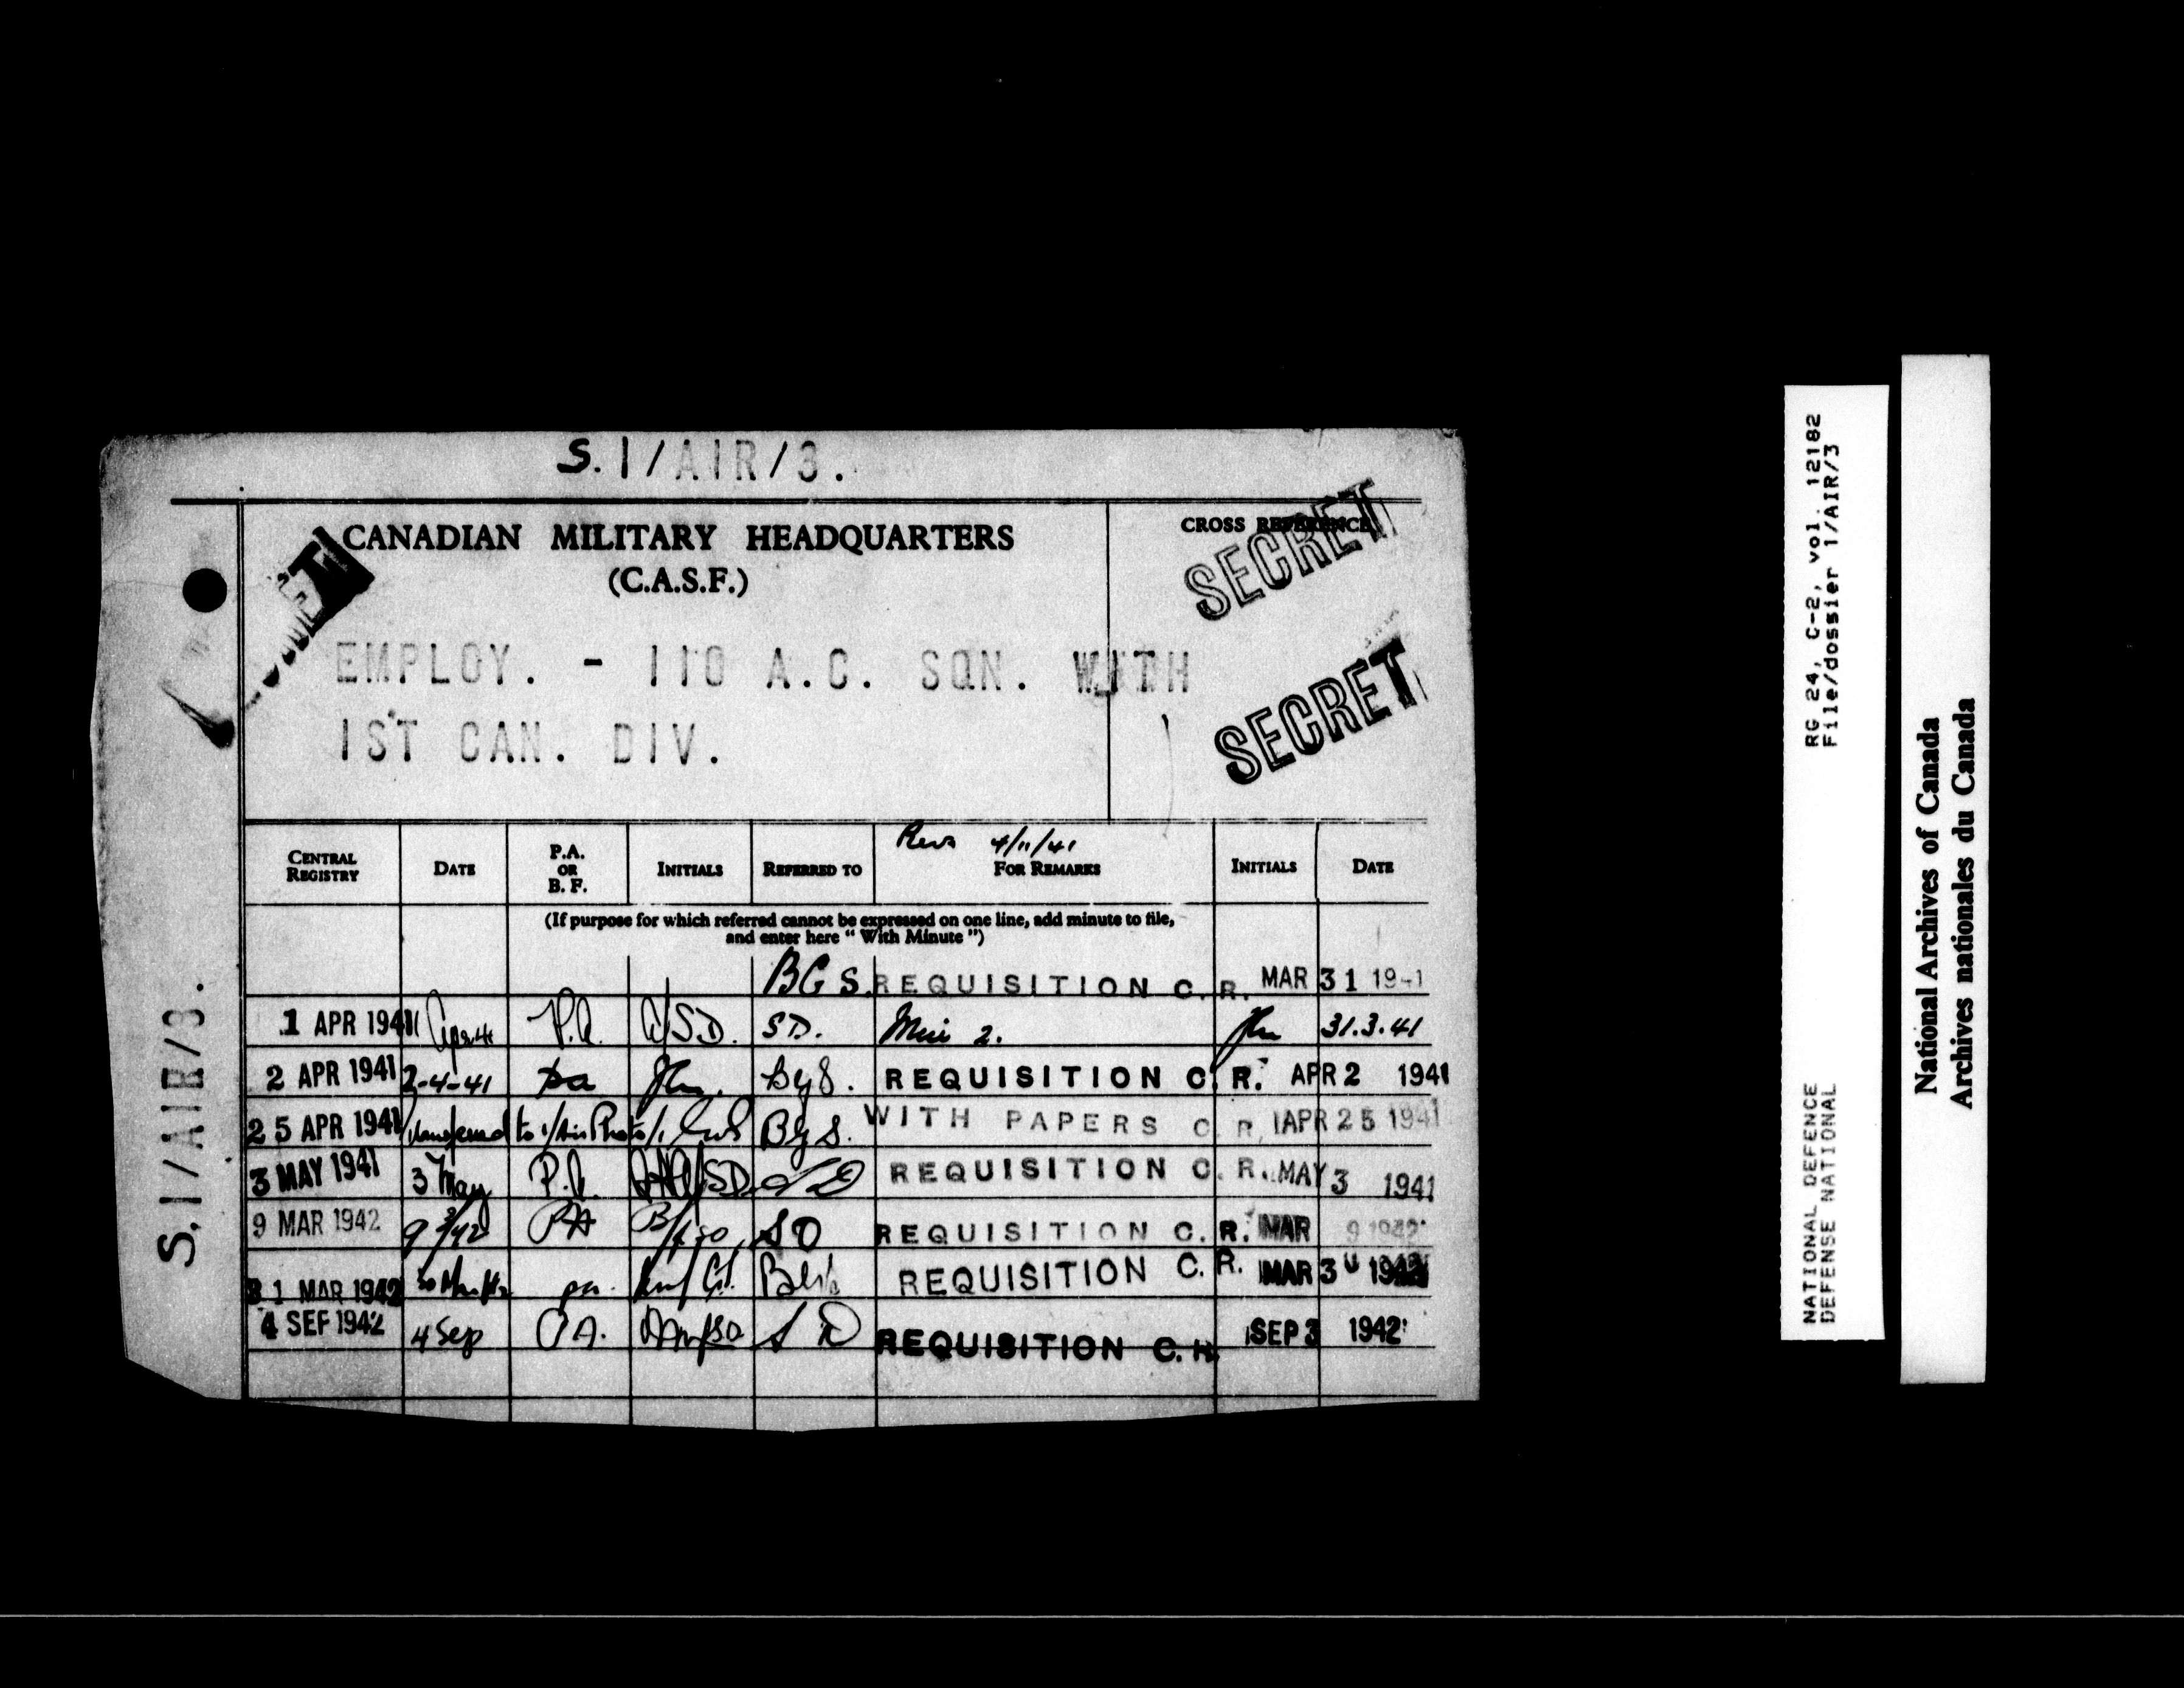 S.1/AIR/3.
CANADIAN MILITARY HEADQUARTERS
(C.A.S.F.)
CROSS REFERENCE
SECRET
SECRET
EMPLOY. - 110 A.C. SQN. WITH
1ST CAN. DIV.
4/11/41
CENTRAL REGISTRY DATE P.A. OR B. F. INITIALS REFERRED TO FOR REMARKS INITIALS DATE
(If purpose for which referred cannot be expressed on one line, add minute to file,
and enter here "With Minute")
BGS. REQUISITION C. R. MAR 31 19-1
1 APR 1941 P.A. S.D. 2. 31.3.41
2 APR 1941 2-4-41 pa BGS. REQUISITION C. R. APR 2 1941
25 APR 1941 Transferred to 1/Air Photo/1 BGS. WITH PAPERS C. R. APR 25 1941
3 MAY 1941 3 May P.A. SD REQUISITION C. R. MAY 3 1941
9 MAR 1942 9/3/42 PA SD REQUISITION C. R. MAR 9 1942
31 MAR 1942 pa. REQUISITION C. R. MAR 30 1942
4 SEP 1942 4 Sep P.A. SD REQUISITION C. R. SEP 3 1942
S.1/AIR/3.
RG 24, C-2, vol. 12182
File/dossier 1/AIR/3
NATIONAL DEFENCE
DEFENSE NATIONAL
National Archives of Canada
Archives nationales du Canada